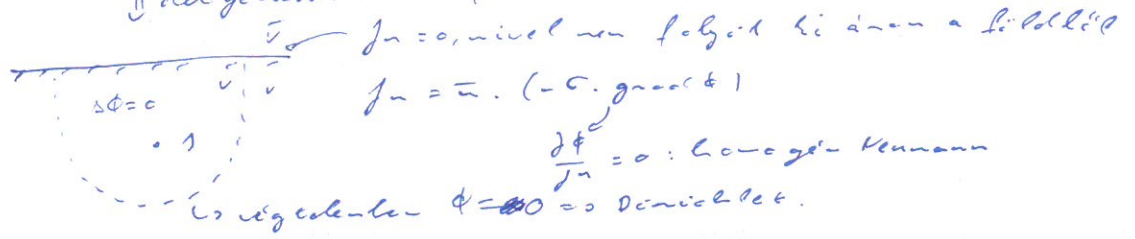 Jn = 0, mivel nem folyik ki áram a földből
Jn = n̄ . (-σ. grad Φ)
ΔΦ = 0
. 1
∂Φ/∂n = 0 : homogén Neumann
végtelenben Φ = 0 => Dirichlet.